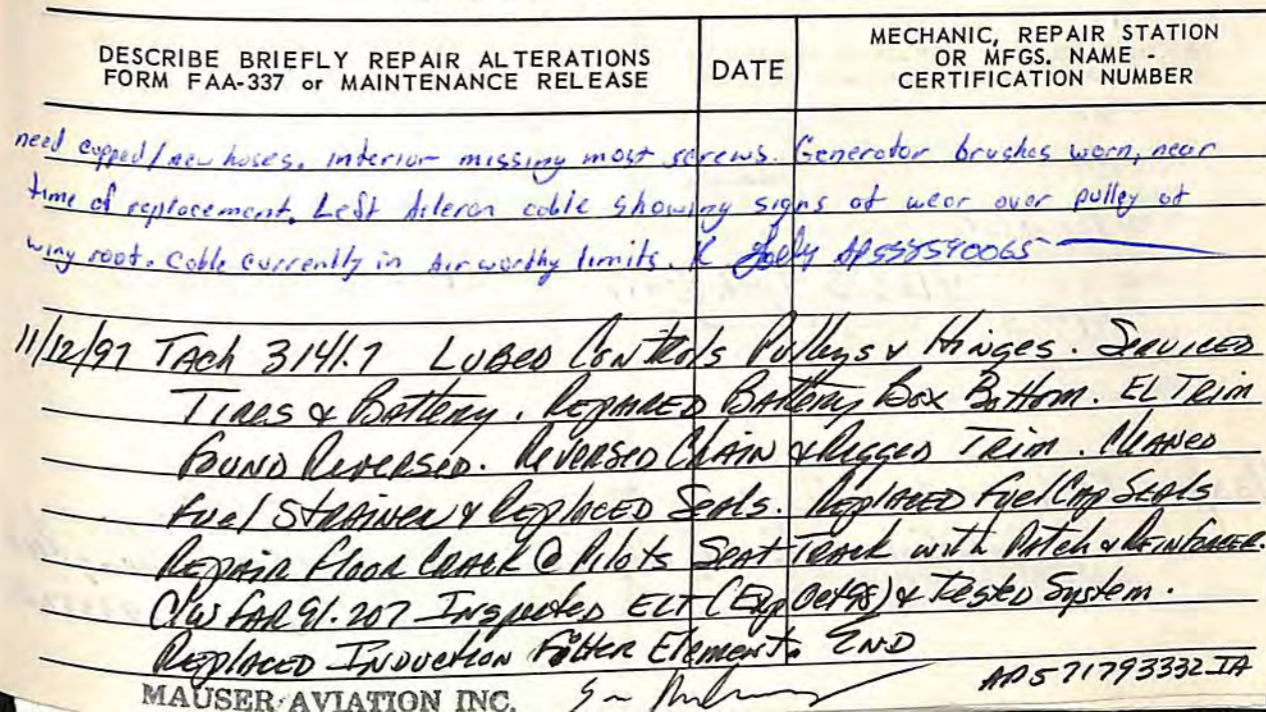 DESCRIBE BRIEFLY REPAIR ALTERATIONS
FORM FAA-337 or MAINTENANCE RELEASE
DATE
MECHANIC, REPAIR STATION
OR MFGS. NAME -
CERTIFICATION NUMBER
need capped/new hoses. interior missing most screws. Generator brushes worn, near
time of replacement. Left Aileron cable showing signs of wear over pulley at
wing root. Cable currently in Airworthy limits. K
11/12/97 TACH 3141.7 LUBED CONTROLS PULLEYS & HINGES. SERVICED
TIRES & BATTERY. REPAIRED BATTERY BOX BOTTOM. EL TRIM
FOUND REVERSED. REVERSED CHAIN & RIGGED TRIM. CLEANED
FUEL STRAINER & REPLACED SEALS. REPLACED FUEL CAP SEALS
REPAIR FLOOR CRACK @ PILOTS SEAT TRACK with PATCH & REINFORCER.
C/W FAR 91.207 INSPECTED ELT (Exp Oct 98) & TESTED System.
REPLACED INDUCTION FILTER ELEMENT. END
MAUSER AVIATION INC.
AP571793332 IA